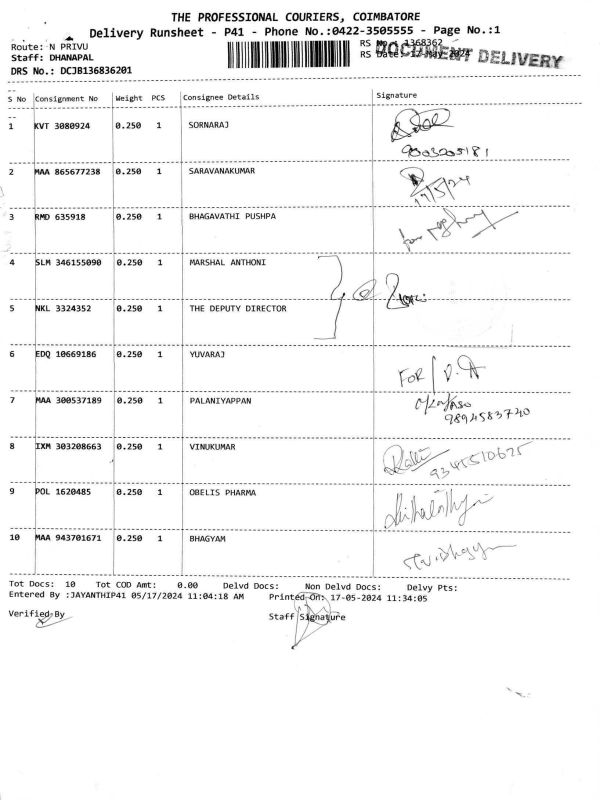 THE PROFESSIONAL COURIERS, COIMBATORE
Delivery Runsheet - P41 - Phone No.:0422-3505555 - Page No.:1
Route: N PRIVU
RS No.: 1368362
Staff: DHANAPAL
RS Date: 17-May-2024
DOCUMENT DELIVERY
DRS No.: DCJB136836201
S No Consignment No Weight PCS Consignee Details Signature
1 KVT 3080924 0.250 1 SORNARAJ
9003205181
2 MAA 865677238 0.250 1 SARAVANAKUMAR
17/5/24
3 RMD 635918 0.250 1 BHAGAVATHI PUSHPA
4 SLM 346155090 0.250 1 MARSHAL ANTHONI
5 NKL 3324352 0.250 1 THE DEPUTY DIRECTOR
6 EDQ 10669186 0.250 1 YUVARAJ
FOR
7 MAA 300537189 0.250 1 PALANIYAPPAN
9894583740
8 IXM 303208663 0.250 1 VINUKUMAR
9345510675
9 POL 1620485 0.250 1 OBELIS PHARMA
10 MAA 943701671 0.250 1 BHAGYAM
Tot Docs: 10 Tot COD Amt: 0.00 Delvd Docs: Non Delvd Docs: Delvy Pts:
Entered By :JAYANTHIP41 05/17/2024 11:04:18 AM Printed On: 17-05-2024 11:34:05
Verified By
Staff Signature